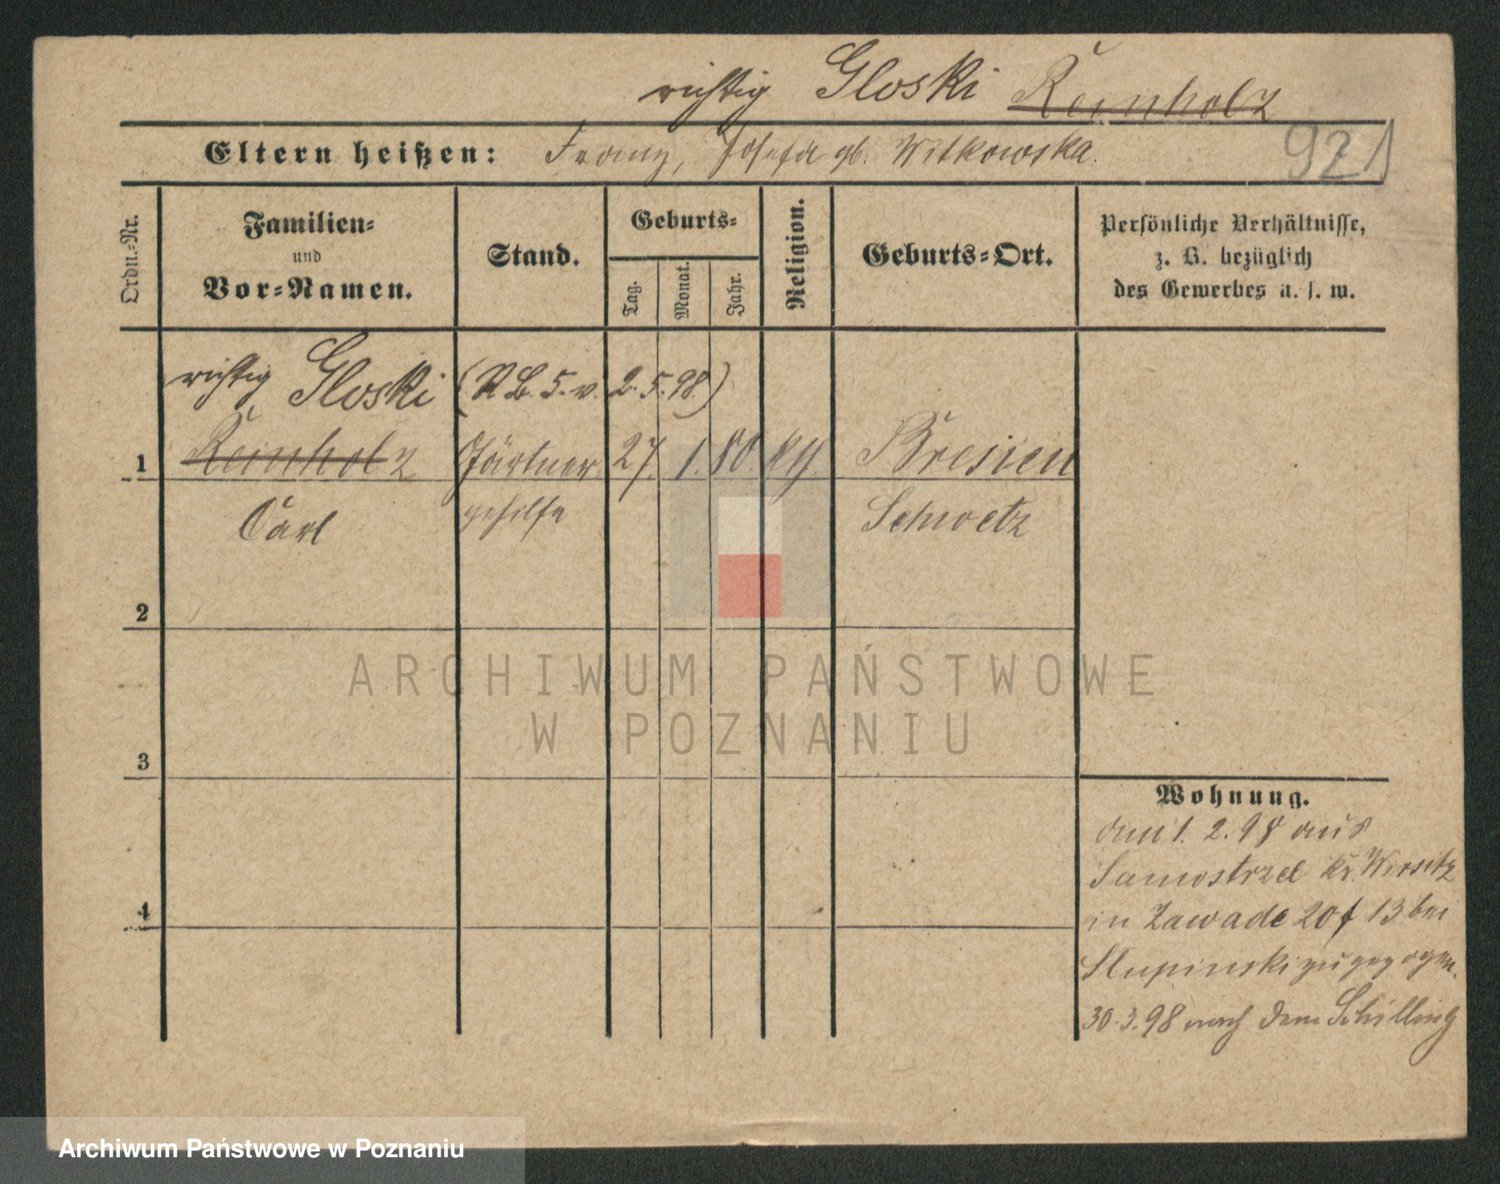 richtig Gloski Reinholz
Eltern heißen: Franz, Josefa gb. Witkowska.
921
Ordn.-Nr.
Familien-
und
Vor-Namen.
Stand.
Geburts-
Tag.
Monat.
Jahr.
Religion.
Geburts-Ort.
Persönliche Verhältnisse,
z. B. bezüglich
des Gewerbes u. s. w.
richtig Gloski (RB. 5. v. 2. 5. 98)
1 Reinholz Gärtner 27. 1. 80. Bresien
Carl gehilfe Schwetz
2
3
4
Wohnung.
am 1. 2. 98 aus
Samostrzel Kr. Wirsitz
in Zawade 20f 13 bei
Slupinski zugezogen.
30. 3. 98 nach dem Schilling
ARCHIWUM PAŃSTWOWE
W POZNANIU
Archiwum Państwowe w Poznaniu